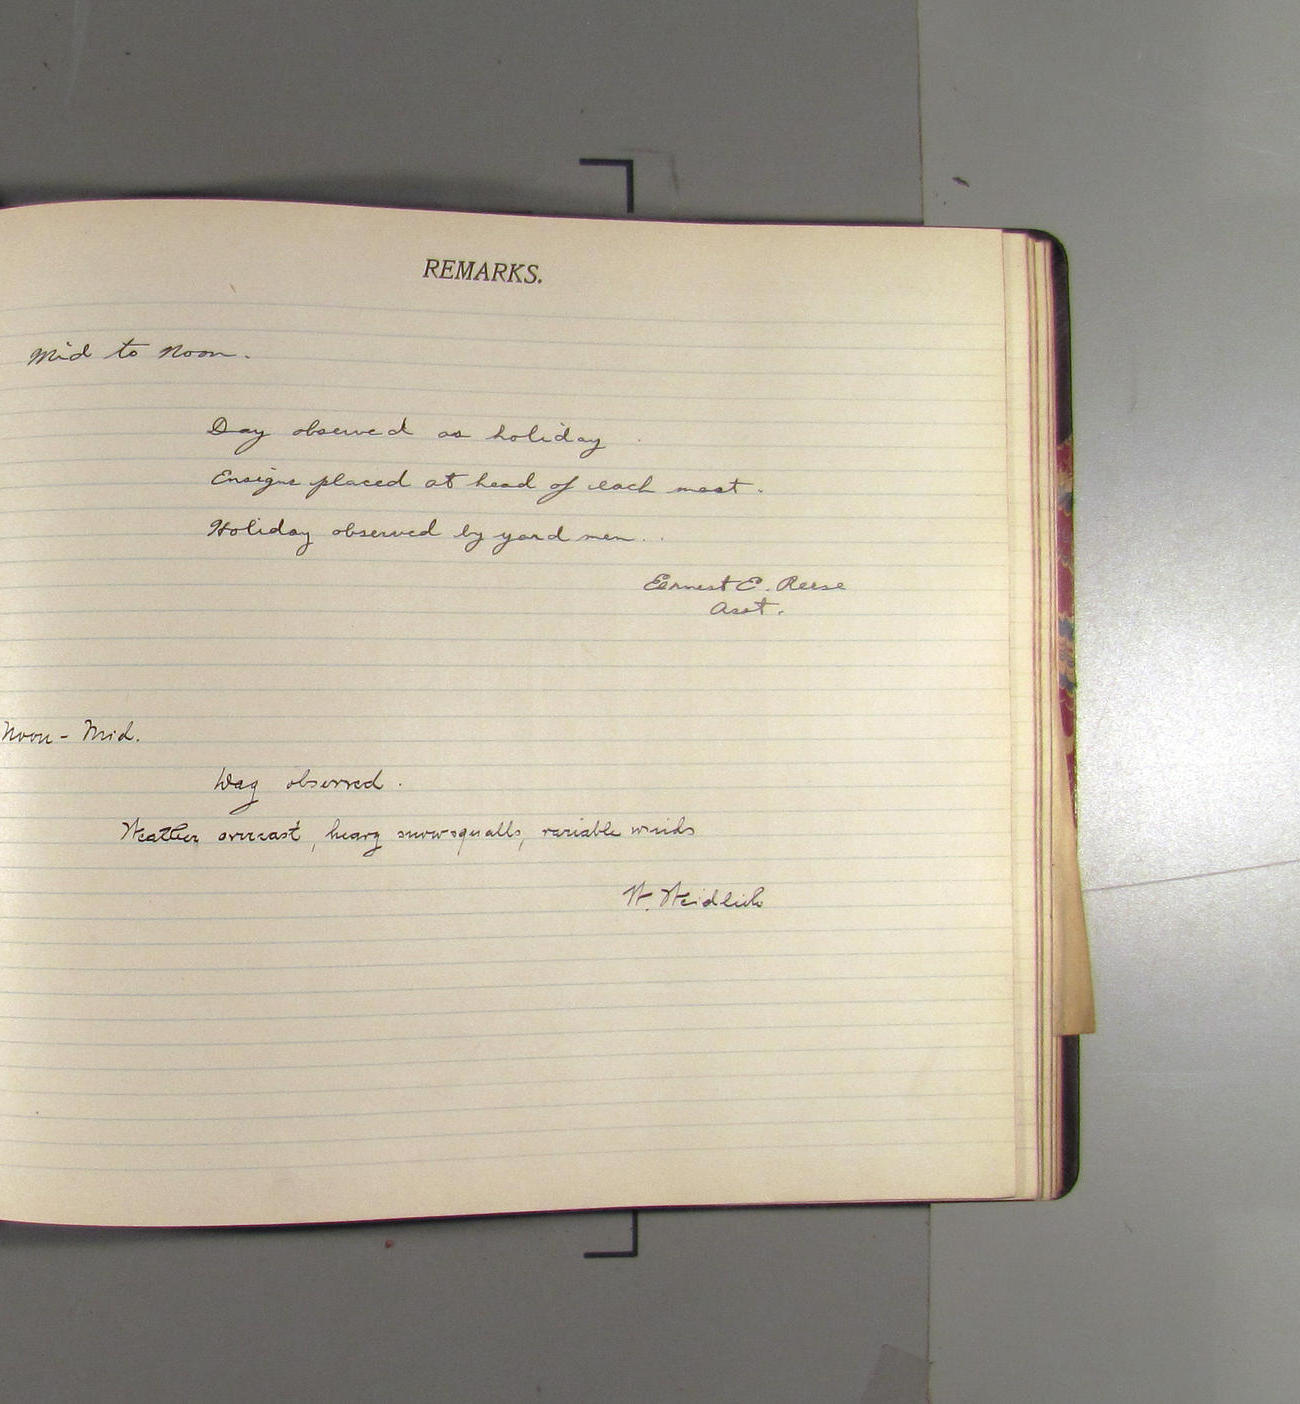 REMARKS.
Mid to Noon.
Day observed as holiday
Ensigns placed at head of each mast.
Holiday observed by yard men.
Ernest E. Reese
Asst.
Noon - Mid.
Day observed.
Weather overcast, heavy snowsqualls, variable winds
W. Weidlich